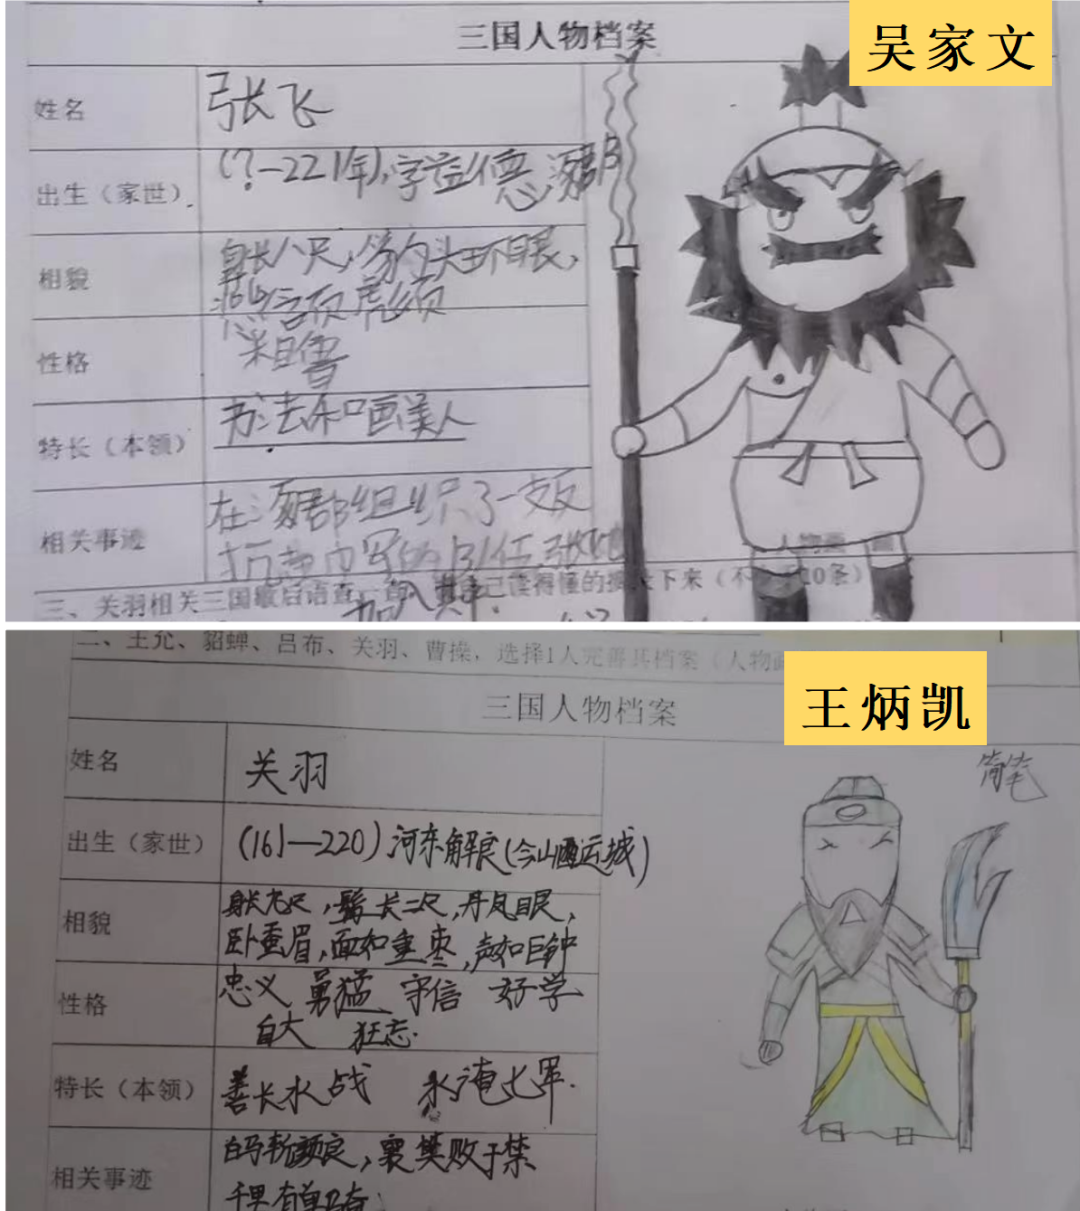 三国人物档案
吴家文
姓名
张飞
出生（家世）
(?—221年),字益德,涿郡
相貌
身长八尺,豹头环眼,
燕含页虎须
性格
粗鲁
特长（本领）
书法和画美人
相关事迹
在涿郡组织了一支反
抗黄巾军的队伍,张飞
加入其中.
人物画
三、关羽相关三国歇后语查一查
己读得懂的
下来（不
10条）
二、王允、貂蝉、吕布、关羽、曹操，选择1人完善其档案（人物画
三国人物档案
王炳凯
姓名
关羽
简笔
出生（家世）
(161—220)河东解良(今山西运城)
相貌
身长九尺,髯长二尺,丹凤眼,
卧蚕眉,面如重枣,声如巨钟
性格
忠义 勇猛 守信 好学
自大 狂忘.
特长（本领）
善长水战 水淹七军.
相关事迹
白马斩颜良,襄樊败于禁
千里有单骑;